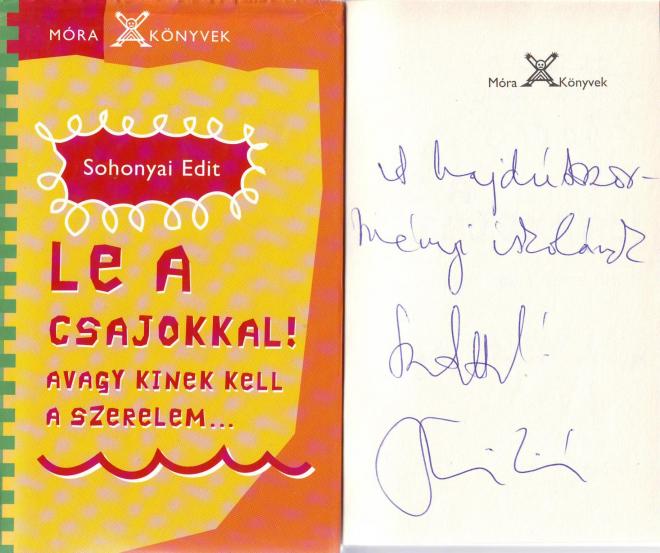 MÓRA KÖNYVEK
Sohonyai Edit
LE A
CSAJOKKAL!
AVAGY KINEK KELL
A SZERELEM...
Móra Könyvek
A hajdúböször-
ményi iskolának